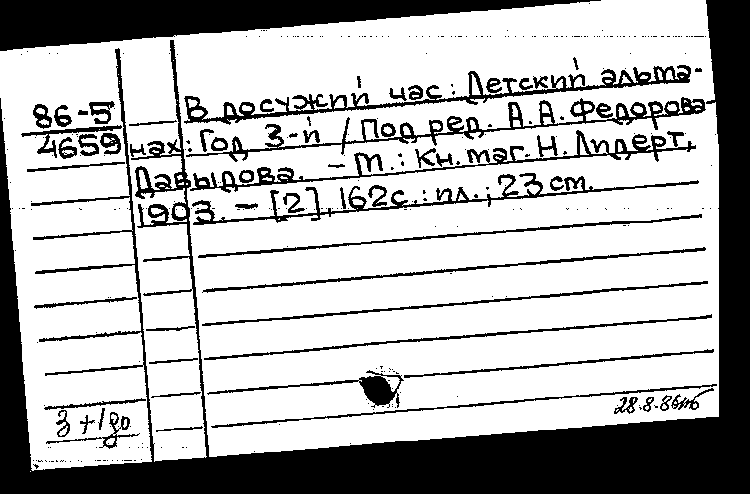 86-5
4659
В досужий час: Детский альма-
нах: Год 3-й / Под ред. А. А. Федорова-
Давыдова. – М.: Кн. маг. Н. Лидерт,
1903. – [2], 162 с.: ил.; 23 см.
3 + 1 до
28.8.86